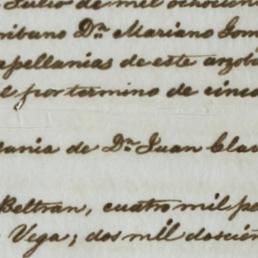 Julio de mil ochocien
cribano Dn. Mariano Gom
apellanias de este arzobi
l por termino de cinco
lania de Dn. Juan Clav
Beltran, cuatro mil pe
Vega; dos mil doscien